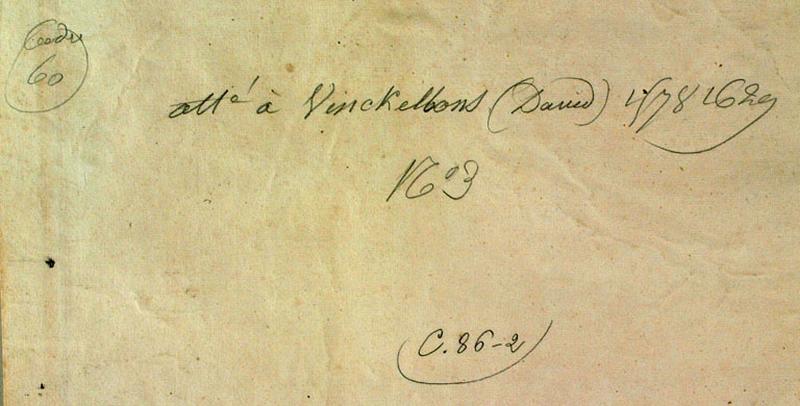 Cadre
60
atté à Vinckelbons (David) 1578 1629
No 3
C. 86-2